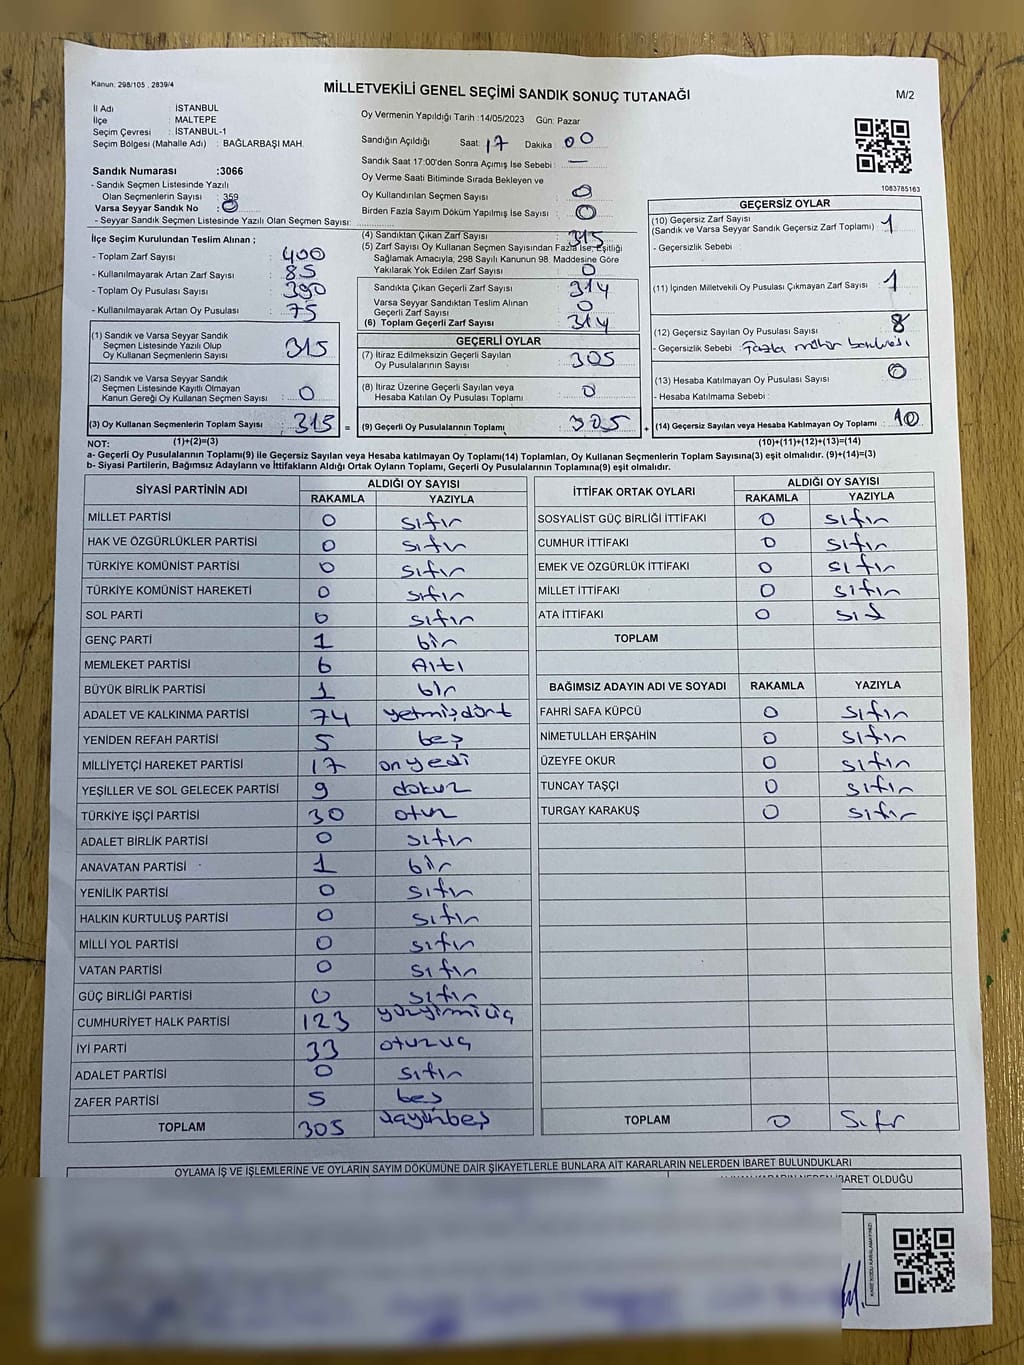 Kanun. 298/105 . 2839/4
MİLLETVEKİLİ GENEL SEÇİMİ SANDIK SONUÇ TUTANAĞI
M/2
İl Adı : İSTANBUL
İlçe : MALTEPE
Seçim Çevresi : İSTANBUL-1
Seçim Bölgesi (Mahalle Adı) : BAĞLARBAŞI MAH.
Sandık Numarası :3066
- Sandık Seçmen Listesinde Yazılı
Olan Seçmenlerin Sayısı : 359
Varsa Seyyar Sandık No : 0
- Seyyar Sandık Seçmen Listesinde Yazılı Olan Seçmen Sayısı:
Oy Vermenin Yapıldığı Tarih :14/05/2023 Gün: Pazar
Sandığın Açıldığı Saat: 17 Dakika : 00
Sandık Saat 17:00'den Sonra Açımış İse Sebebi : —
Oy Verme Saati Bitiminde Sırada Bekleyen ve
Oy Kullandırılan Seçmen Sayısı : 0
Birden Fazla Sayım Döküm Yapılmış İse Sayısı : 0
1083785163
İlçe Seçim Kurulundan Teslim Alınan ;
- Toplam Zarf Sayısı : 400
- Kullanılmayarak Artan Zarf Sayısı : 85
- Toplam Oy Pusulası Sayısı : 390
- Kullanılmayarak Artan Oy Pusulası : 75
(1) Sandık ve Varsa Seyyar Sandık
Seçmen Listesinde Yazılı Olup
Oy Kullanan Seçmenlerin Sayısı : 315
(2) Sandık ve Varsa Seyyar Sandık
Seçmen Listesinde Kayıtlı Olmayan
Kanun Gereği Oy Kullanan Seçmen Sayısı : 0
(3) Oy Kullanan Seçmenlerin Toplam Sayısı : 315 =
(4) Sandıktan Çıkan Zarf Sayısı : 315
(5) Zarf Sayısı Oy Kullanan Seçmen Sayısından Fazla İse, Eşitliği
Sağlamak Amacıyla, 298 Sayılı Kanunun 98. Maddesine Göre
Yakılarak Yok Edilen Zarf Sayısı : 0
Sandıkta Çıkan Geçerli Zarf Sayısı : 314
Varsa Seyyar Sandıktan Teslim Alınan
Geçerli Zarf Sayısı : 0
(6) Toplam Geçerli Zarf Sayısı : 314
GEÇERLİ OYLAR
(7) İtiraz Edilmeksizin Geçerli Sayılan
Oy Pusulalarının Sayısı : 305
(8) İtiraz Üzerine Geçerli Sayılan veya
Hesaba Katılan Oy Pusulası Toplamı : 0
(9) Geçerli Oy Pusulalarının Toplamı : 305 +
GEÇERSİZ OYLAR
(10) Geçersiz Zarf Sayısı
(Sandık ve Varsa Seyyar Sandık Geçersiz Zarf Toplamı) : 1
- Geçersizlik Sebebi :
(11) İçinden Milletvekili Oy Pusulası Çıkmayan Zarf Sayısı : 1
(12) Geçersiz Sayılan Oy Pusulası Sayısı : 8
- Geçersizlik Sebebi : Fazla mühür
(13) Hesaba Katılmayan Oy Pusulası Sayısı : 0
- Hesaba Katılmama Sebebi :
(14) Geçersiz Sayılan veya Hesaba Katılmayan Oy Toplamı : 10
NOT: (1)+(2)=(3) (10)+(11)+(12)+(13)=(14)
a- Geçerli Oy Pusulalarının Toplamı(9) ile Geçersiz Sayılan veya Hesaba Katılmayan Oy Toplamı(14) Toplamları, Oy Kullanan Seçmenlerin Toplam Sayısına(3) eşit olmalıdır. (9)+(14)=(3)
b- Siyasi Partilerin, Bağımsız Adayların ve İttifakların Aldığı Ortak Oyların Toplamı, Geçerli Oy Pusulalarının Toplamına(9) eşit olmalıdır.
SİYASİ PARTİNİN ADI ALDIĞI OY SAYISI
RAKAMLA YAZIYLA
MİLLET PARTİSİ 0 sıfır
HAK VE ÖZGÜRLÜKLER PARTİSİ 0 sıfır
TÜRKİYE KOMÜNİST PARTİSİ 0 sıfır
TÜRKİYE KOMÜNİST HAREKETİ 0 sıfır
SOL PARTİ 0 sıfır
GENÇ PARTİ 1 bir
MEMLEKET PARTİSİ 6 Altı
BÜYÜK BİRLİK PARTİSİ 1 bir
ADALET VE KALKINMA PARTİSİ 74 yetmişdört
YENİDEN REFAH PARTİSİ 5 beş
MİLLİYETÇİ HAREKET PARTİSİ 17 onyedi
YEŞİLLER VE SOL GELECEK PARTİSİ 9 dokuz
TÜRKİYE İŞÇİ PARTİSİ 30 otuz
ADALET BİRLİK PARTİSİ 0 sıfır
ANAVATAN PARTİSİ 1 bir
YENİLİK PARTİSİ 0 sıfır
HALKIN KURTULUŞ PARTİSİ 0 sıfır
MİLLİ YOL PARTİSİ 0 sıfır
VATAN PARTİSİ 0 sıfır
GÜÇ BİRLİĞİ PARTİSİ 0 sıfır
CUMHURİYET HALK PARTİSİ 123 yüzyirmiüç
İYİ PARTİ 33 otuzüç
ADALET PARTİSİ 0 sıfır
ZAFER PARTİSİ 5 beş
TOPLAM 305
İTTİFAK ORTAK OYLARI ALDIĞI OY SAYISI
RAKAMLA YAZIYLA
SOSYALİST GÜÇ BİRLİĞİ İTTİFAKI 0 sıfır
CUMHUR İTTİFAKI 0 sıfır
EMEK VE ÖZGÜRLÜK İTTİFAKI 0 sıfır
MİLLET İTTİFAKI 0 sıfır
ATA İTTİFAKI 0
TOPLAM
BAĞIMSIZ ADAYIN ADI VE SOYADI RAKAMLA YAZIYLA
FAHRİ SAFA KÜPCÜ 0 sıfır
NİMETULLAH ERŞAHİN 0 sıfır
ÜZEYFE OKUR 0 sıfır
TUNCAY TAŞÇI 0 sıfır
TURGAY KARAKUŞ 0 sıfır
TOPLAM 0 Sıfır
OYLAMA İŞ VE İŞLEMLERİNE VE OYLARIN SAYIM DÖKÜMÜNE DAİR ŞİKAYETLERLE BUNLARA AİT KARARLARIN NELERDEN İBARET BULUNDUKLARI
İBARET OLDUĞU